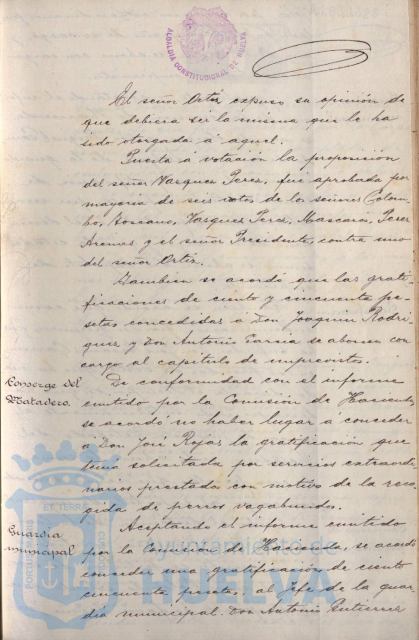 ALCALDÍA CONSTITUCIONAL DE HUELVA
El señor Ortiz expuso su opinión de
que debiera ser la misma que le ha
sido otorgada á aquel.
Puesta á votación la proposición
del señor Vazquez Perez, fué aprobada por
mayoria de seis votos, de los señores Colom-
bo, Toscano, Vazquez Perez, Mascarós, Perez
Arenas y el señor Presidente, contra uno
del señor Ortiz.
Tambien se acordó que las grati-
ficaciones de ciento y cincuenta pe-
setas concedidas á Don Joaquin Rodri
guez y Don Antonio Garcia se abonen con
cargo al capitulo de imprevistos.
Conserge del
Matadero.
De conformidad con el informe
emitido por la Comisión de Hacienda,
se acordó no haber lugar á conceder
a Don José Rojas la gratificación que
tenia solicitada por servicios extraordi
narios prestados con motivo de la reco
gida de perros vagabundos.
Guardia
municipal
Aceptando el informe emitido
por la Comision de Hacienda, se acordó
conceder una gratificación de ciento
cincuenta pesetas, al Jefe de la guar
dia municipal. Don Antonio Gutierrez
ET TERRAE
Ayuntamiento de
HUELVA